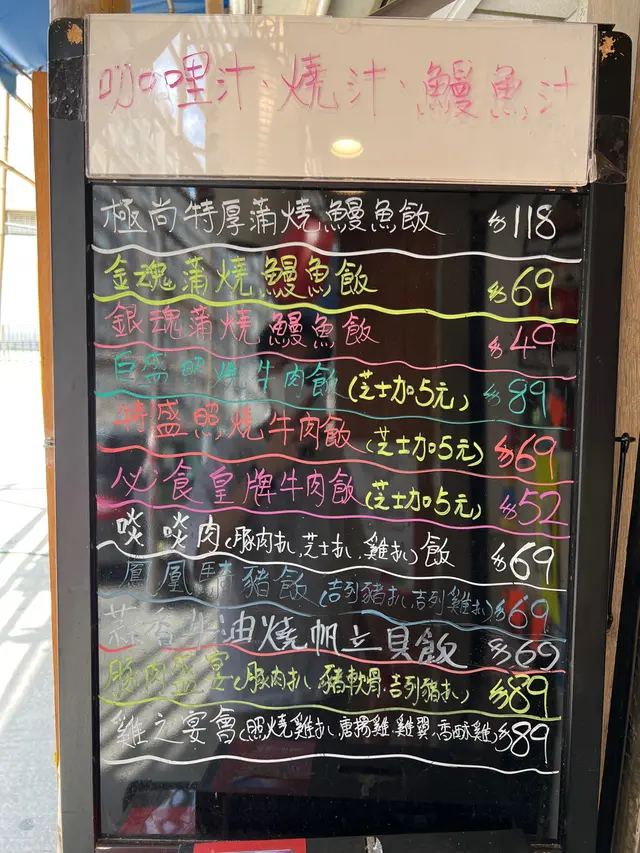 咖哩汁、燒汁、鰻魚汁
極尚特厚蒲燒鰻魚飯 $118
金魂蒲燒鰻魚飯 $69
銀魂蒲燒鰻魚飯 $49
巨盛照燒牛肉飯(芝士加5元) $89
特盛照燒牛肉飯(芝士加5元) $69
必食皇牌牛肉飯(芝士加5元) $52
啖啖肉(豚肉扒、芝士扒、雞扒)飯 $69
鳳凰騎豬飯(吉列豬扒,吉列雞扒) $69
蒜香牛油燒帆立貝飯 $69
豚肉盛宴(豚肉扒、豬軟骨、吉列豬扒) $89
雞之宴會(照燒雞扒、唐揚雞、雞翼、香酥雞) $89